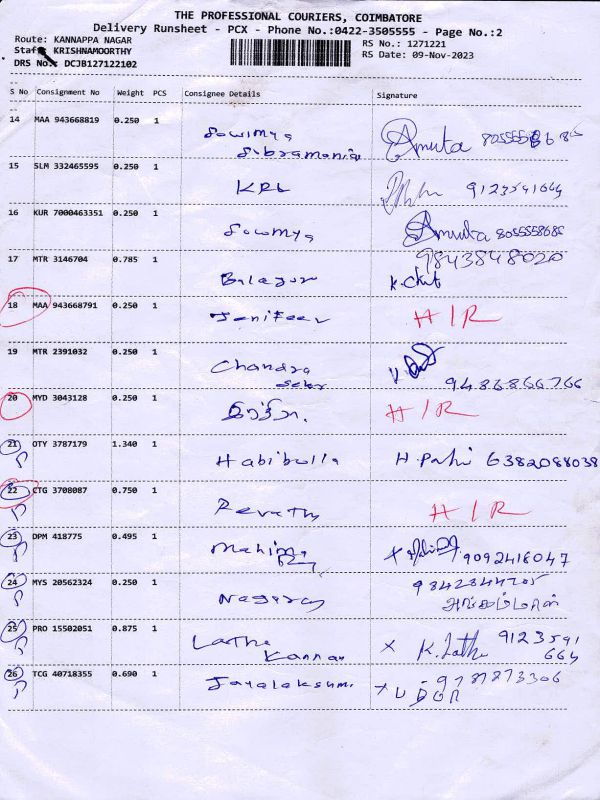 THE PROFESSIONAL COURIERS, COIMBATORE
Delivery Runsheet - PCX - Phone No.:0422-3505555 - Page No.:2
Route: KANNAPPA NAGAR
RS No.: 1271221
Staff: KRISHNAMOORTHY
RS Date: 09-Nov-2023
DRS No.: DCJB127122102
S No Consignment No Weight PCS Consignee Details Signature
14 MAA 943668819 0.250 1 Sowmya Amuta
Subramania
15 SLM 332465595 0.250 1 KRL 9123591664
16 KUR 7000463351 0.250 1 Sowmya Amuta 8055558686
17 MTR 3146704 0.785 1 Balagur 9843848020
18 MAA 943668791 0.250 1 Jenifeer H/R
19 MTR 2391032 0.250 1 Chandra
Sekr 9486866766
20 MYD 3043128 0.250 1 H/R
21 OTY 3787179 1.340 1 Habibulla 6382088038
22 CTG 3708087 0.750 1 Revathy H/R
23 DPM 418775 0.495 1 Mahima 9092416047
24 MYS 20562324 0.250 1 Nagaraj
25 PRO 15502051 0.875 1 Latha K. Latha 9123591
Kannan 664
26 TCG 40718355 0.690 1 Jayalakshmi